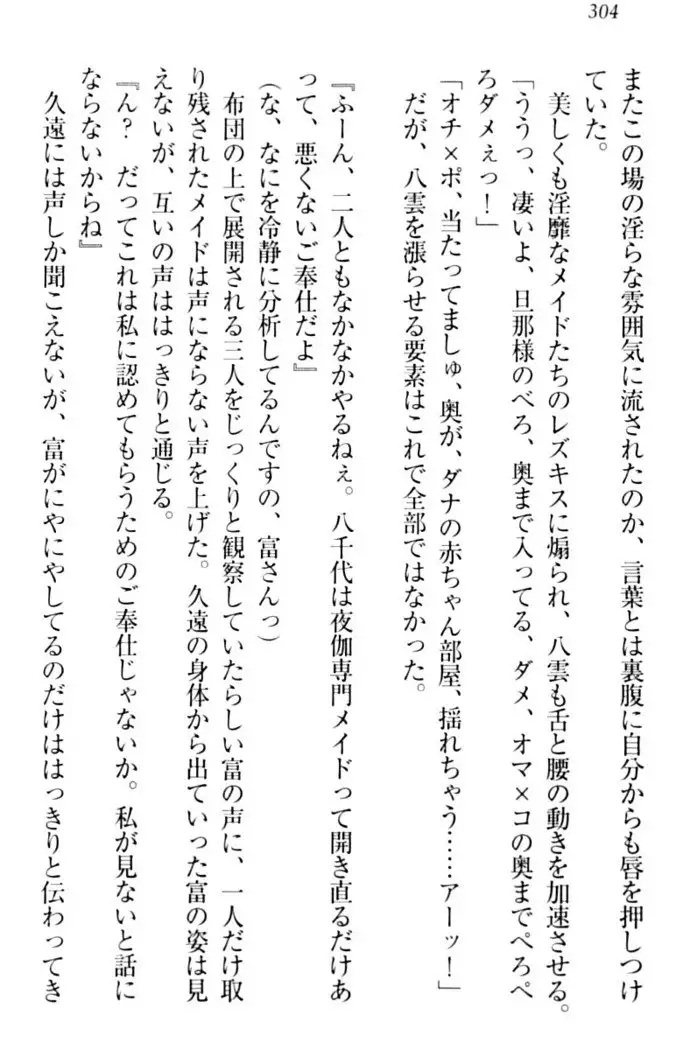 304
またこの場の淫らな雰囲気に流されたのか、言葉とは裏腹に自分からも唇を押しつけ
ていた。
美しくも淫靡なメイドたちのレズキスに煽られ、八雲も舌と腰の動きを加速させる。
「ううっ、凄いよ、旦那様のべろ、奥まで入ってる、ダメ、オマ×コの奥までぺろペ
ろダメぇっ！」
「オチ×ポ、当たってましゅ、奥が、ダナの赤ちゃん部屋、揺れちゃう……アーッ！」
だが、八雲を漲らせる要素はこれで全部ではなかった。
『ふーん、二人ともなかなかやるねぇ。八千代は夜伽専門メイドって開き直るだけあ
って、悪くないご奉仕だよ』
（な、なにを冷静に分析してるんですの、富さんっ）
布団の上で展開される三人をじっくりと観察していたらしい富の声に、一人だけ取
り残されたメイドは声にならない声を上げた。久遠の身体から出ていった富の姿は見
えないが、互いの声ははっきりと通じる。
『ん？　だってこれは私に認めてもらうためのご奉仕じゃないか。私が見ないと話に
ならないからね』
久遠には声しか聞こえないが、富がにやにやしてるのだけははっきりと伝わってき